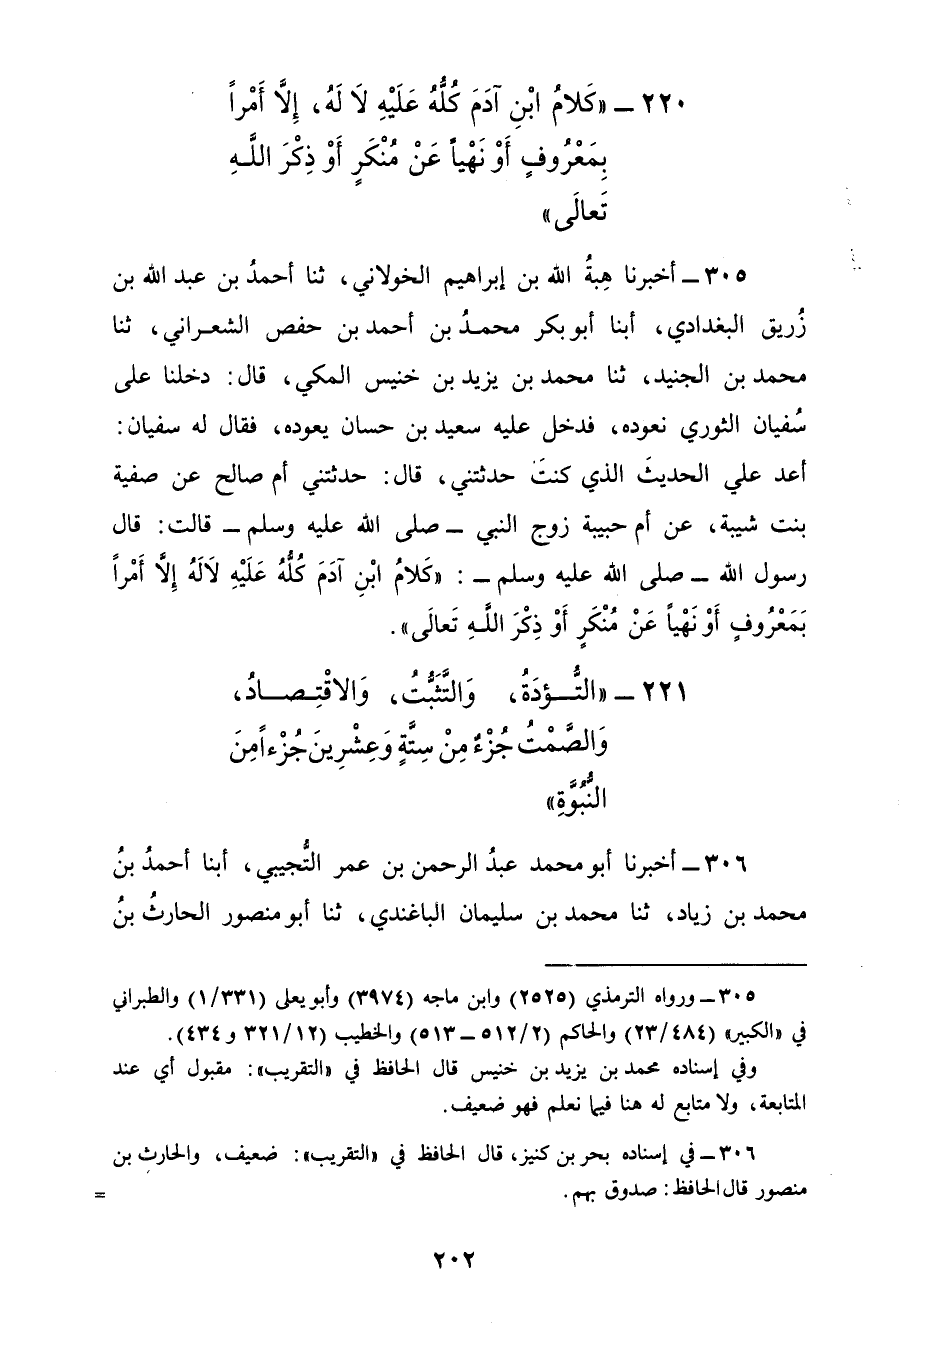 ٢٢٠ ــ «كَلامُ ابْنِ آدَمَ كُلُّهُ عَلَيْهِ لاَ لَهُ، إِلاَّ أَمْراً
بِمَعْرُوفٍ أَوْ نَهْياً عَنْ مُنْكَرٍ أَوْ ذِكْرَ اللَّـهِ
تَعالَى»
٣٠٥ ــ أخبرنا هِبةُ الله بن إبراهيم الخولاني، ثنا أحمدُ بن عبد الله بن
زُريق البغدادي، أبنا أبو بكر محمـدُ بن أحمد بن حفص الشعـراني، ثنا
محمد بن الجنيد، ثنا محمد بن يزيد بن خنيس المكي، قال: دخلنا على
سُفيان الثوري نعوده، فدخل عليه سعيد بن حسان يعوده، فقال له سفيان:
أعد علي الحديثَ الذي كنتَ حدثتني، قال: حدثتني أم صالح عن صفية
بنت شيبة، عن أم حبيبة زوج النبي ــ صلى الله عليه وسلم ــ قالت: قال
رسول الله ــ صلى الله عليه وسلم ــ : «كَلامُ ابْنِ آدَمَ كُلُّهُ عَلَيْهِ لاَلَهُ إِلاَّ أَمْراً
بَمَعْرُوفٍ أَوْ نَهْياً عَنْ مُنْكَرٍ أَوْ ذِكْرَ اللَّـهِ تَعالَى».
٢٢١ ــ «التُّـؤدَةُ، وَالتَّثَبُّتُ، وَالاقْتِـصـادُ،
وَالصَّمْتُ جُزْءٌ مِنْ سِتَّةٍ وَعِشْرِينَ جُزْءاً مِنَ
النُّبُوَّةِ»
٣٠٦ ــ أخبرنا أبو محمد عبدُ الرحمن بن عمر التُّجيبي، أبنا أحمدُ بنُ
محمد بن زياد، ثنا محمد بن سليمان الباغندي، ثنا أبو منصور الحارثُ بنُ
٣٠٥ ــ ورواه الترمذي (٢٥٢٥) وابن ماجه (٣٩٧٤) وأبو يعلى (١/٣٣١) والطبراني
في «الكبير» (٢٣/٤٨٤) والحاكم (٥١٢/٢ ــ ٥١٣) والخطيب (٣٢١/١٢ و ٤٣٤).
وفي إسناده محمد بن يزيد بن خنيس قال الحافظ في «التقريب»: مقبول أي عند
المتابعة، ولا متابع له هنا فيما نعلم فهو ضعيف.
٣٠٦ ــ في إسناده بحر بن كنيز، قال الحافظ في «التقريب»: ضعيف، والحارث بن
منصور قال الحافظ: صدوق يهم. =
٢٠٢